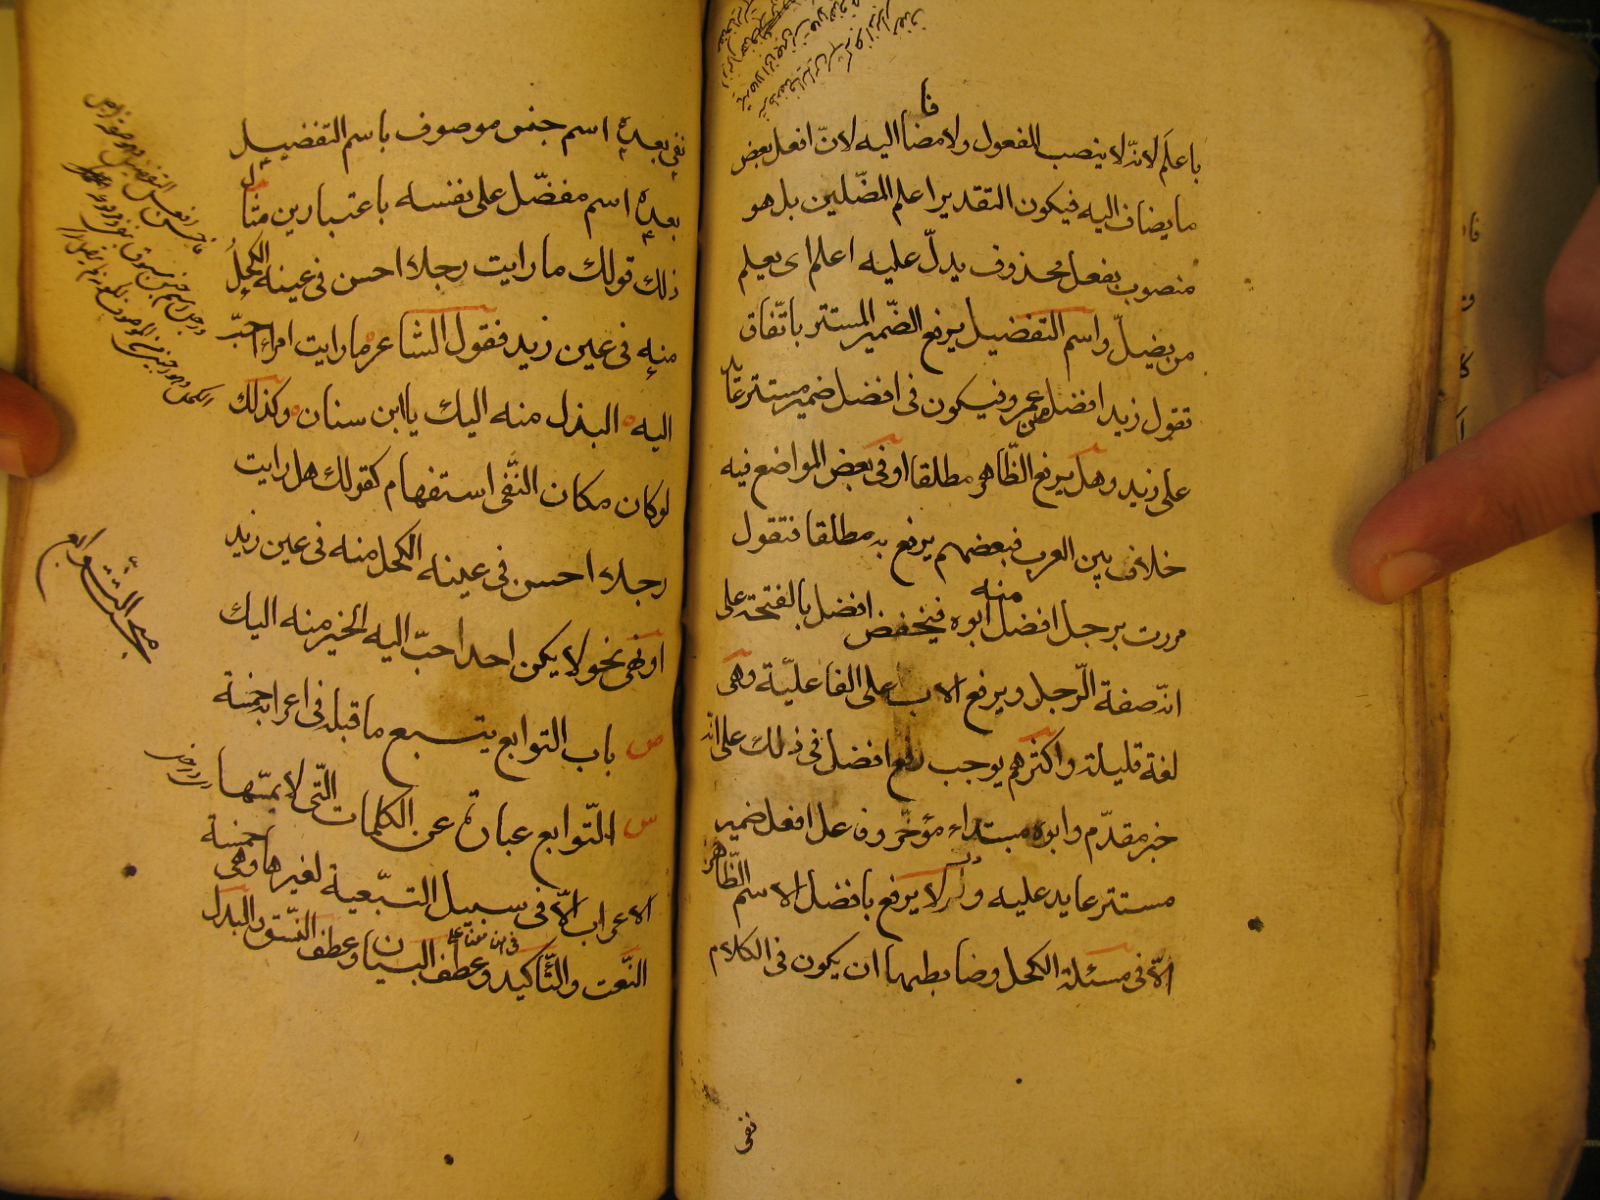 باعلم لانه لا ينصب المفعول ولا مضافا اليه لانّ افعل بعض
ما يضاف اليه فيكون التقدير اعلم المضلين بل هو
منصوب بفعل محذوف يدلّ عليه اعلم اى يعلم
من يضلّ واسم التفضيل يرفع الضّمير المستتر باتّفاق
تقول زيد افضل من عمرو فيكون فى افضل ضمير مستتر عايد
على زيد وهل يرفع الظّاهر مطلقا او فى بعض المواضع فيه
خلاف بين العرب فبعضهم يرفع به مطلقا فتقول
مررت برجل افضل منه ابوه فيخفض افضل بالفتحة على
انّه صفة الرّجل ويرفع الاب على الفاعليّة وهى
لغة قليلة واكثرهم يوجب رفع افضل فى ذلك على انه
خبر مقدّم وابوه مبتداء مؤخّر وفاعل افعل ضمير
مستتر عايد عليه ولا يرفع بافضل الاسم الظّاهر
الاّ فى مسئلة الكحل وضابطها ان يكون فى الكلام
نفى
نفى بعده اسم جنس موصوف باسم التفضيل
بعده اسم مفضّل على نفسه باعتبارين مثال
ذلك قولك ما رايت رجلا احسن فى عينه الكحلُ
منه فى عين زيد فقول الشاعر ما رايت امراء احبّ
اليه البذل منه اليك يا ابن سنان وكذلك
لو كان مكان النّفى استفهام كقولك هل رايت
رجلا احسن فى عينه الكحل منه فى عين زيد
او نهى نحو لا يكن احد احبّ اليه الخير منه اليك
ص باب التوابع يتبع ما قبله فى اعرابه خمسة
س التّوابع عبارة عن الكلمات التّى لا يمسّها
الاعراب الاّ فى سبيل التبّعية لغيرها وهى خمسة
النّعت والتّأكيد وعطف البيان وعطف النّسق والبدل
مبحث التوابع